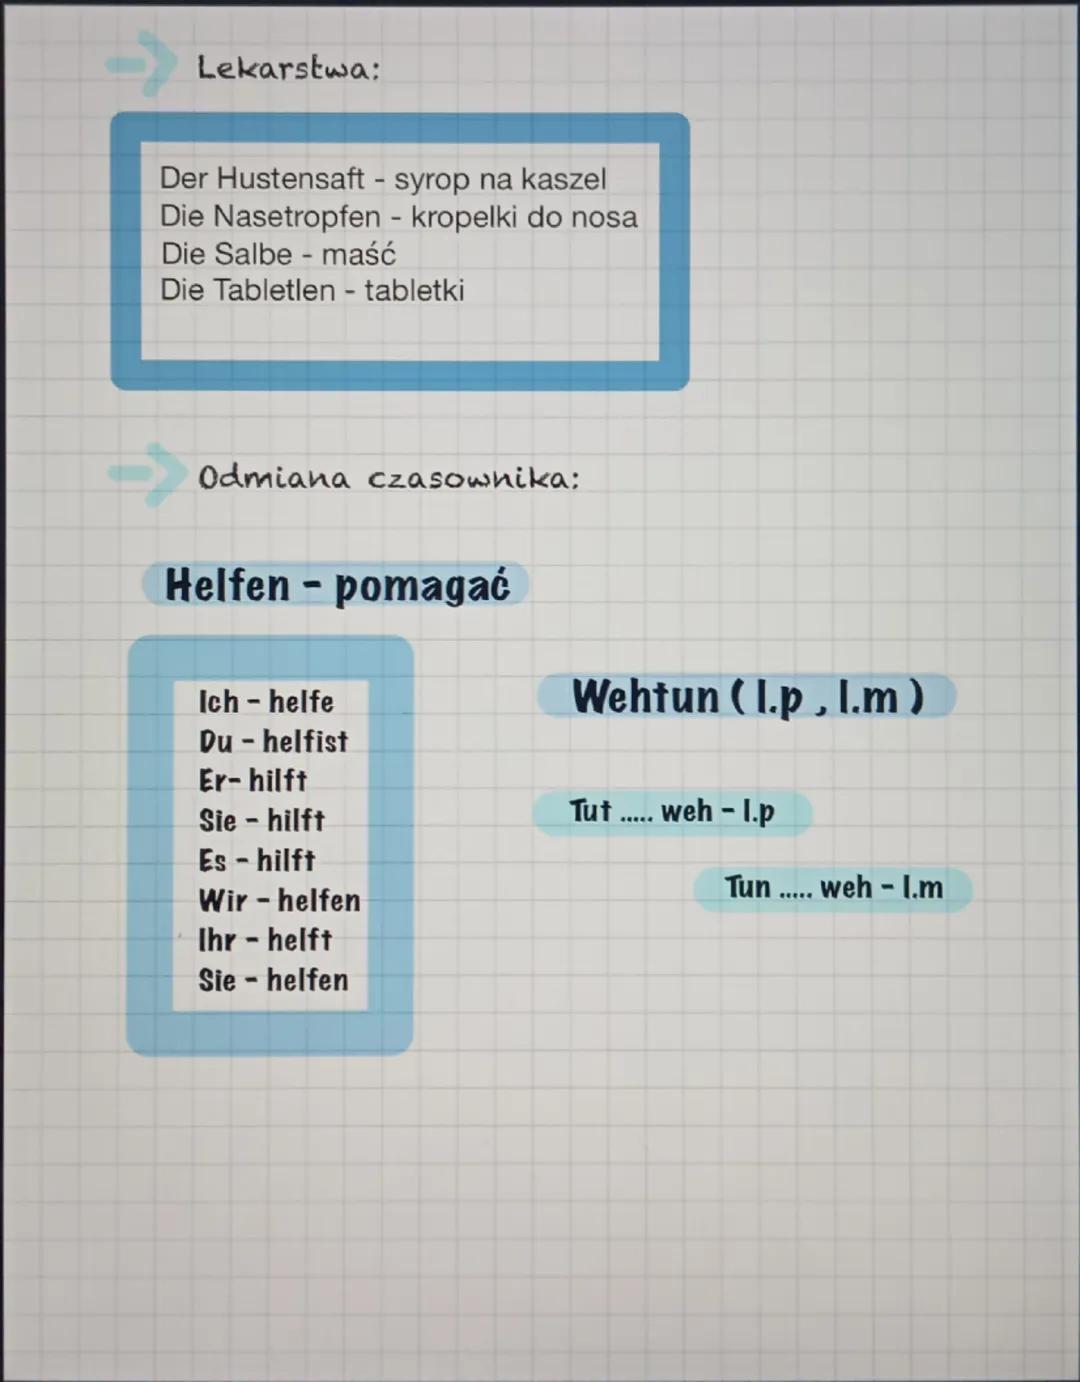 Lekarstwa:
Der Hustensaft - syrop na kaszel
Die Nasetropfen - kropelki do nosa
Die Salbe - maść
Die Tabletlen - tabletki
Odmiana czasownika:
Helfen - pomagać
Ich - helfe
Du - helfist
Er- hilft
Sie - hilft
Es - hilft
Wir - helfen
Ihr - helft
Sie - helfen
Wehtun ( l.p , l.m )
Tut ..... weh - l.p
Tun ..... weh - l.m